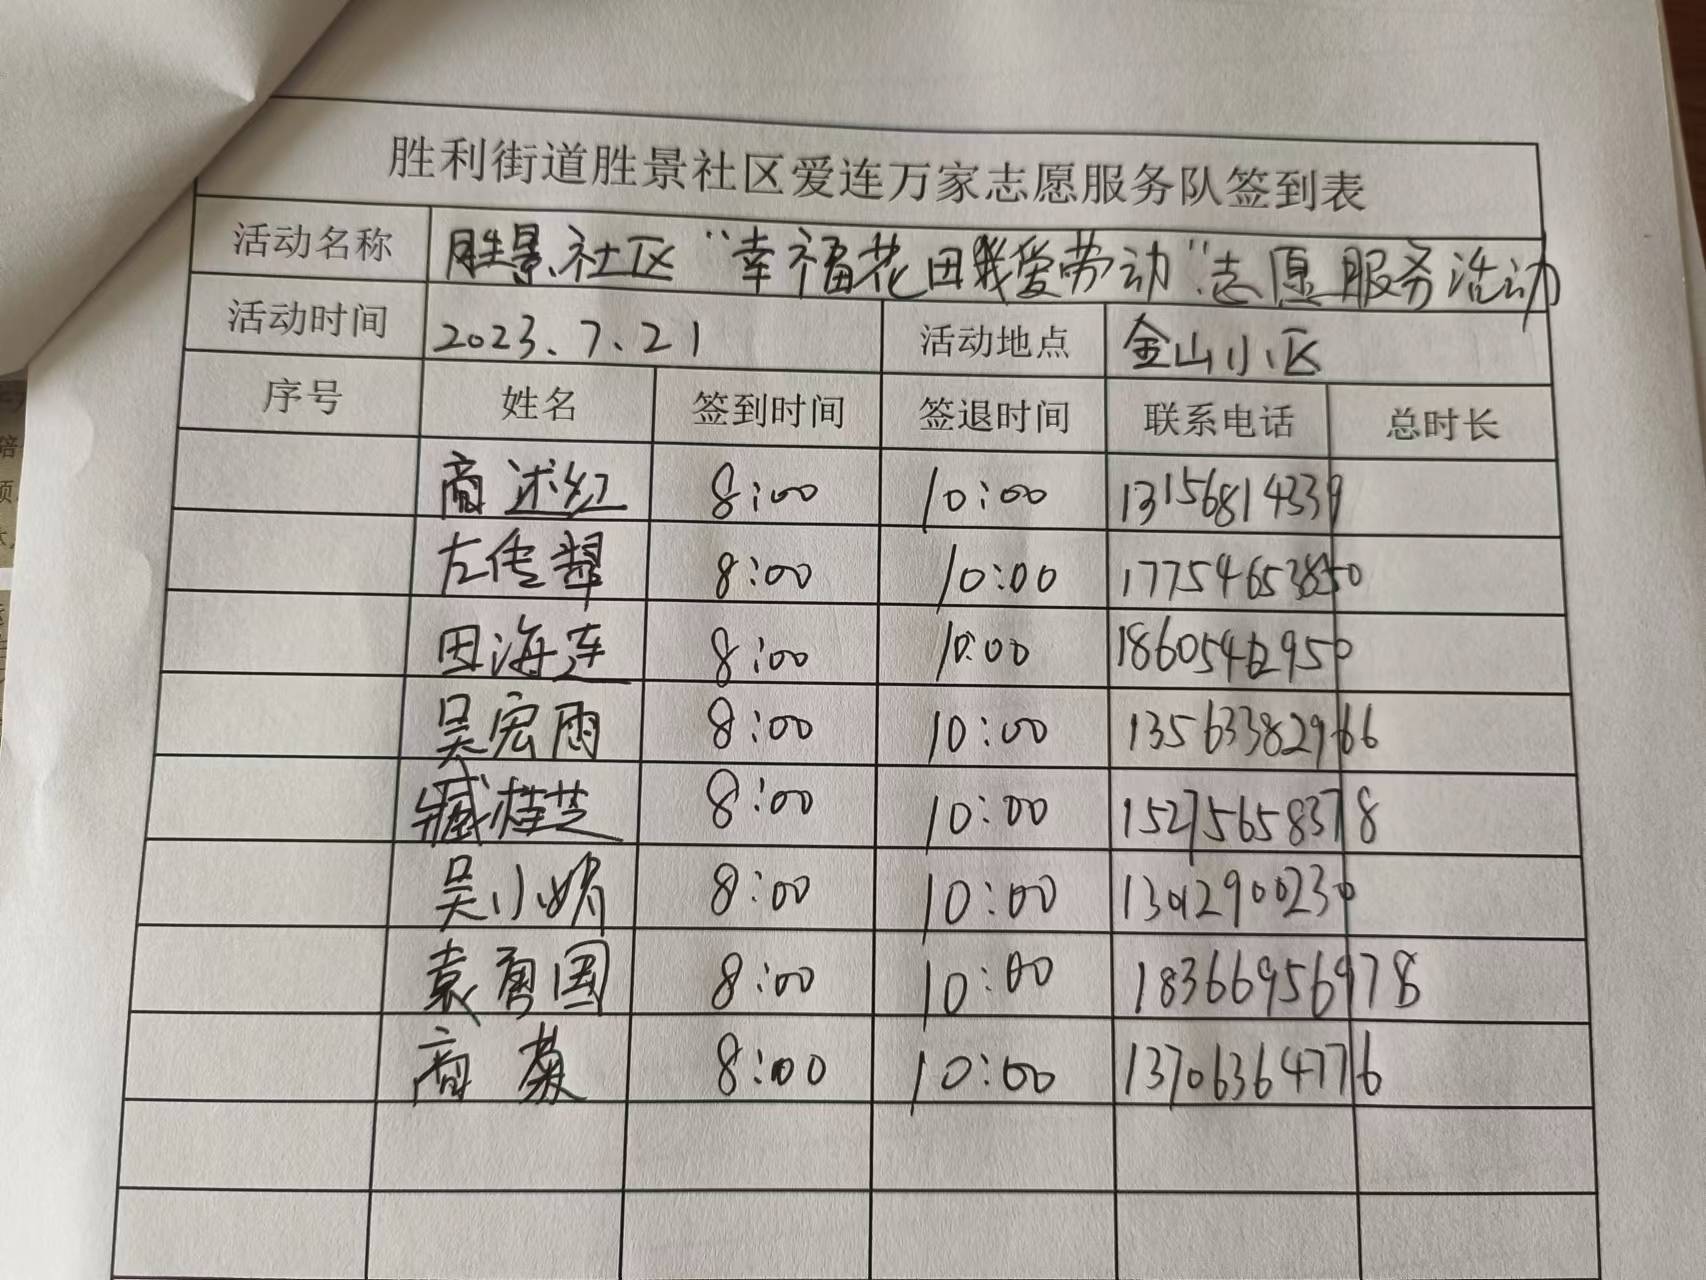 胜利街道胜景社区爱连万家志愿服务队签到表
活动名称 胜景社区“幸福花田我爱劳动”志愿服务活动
活动时间 2023.7.21 活动地点 金山小区
序号 姓名 签到时间 签退时间 联系电话 总时长
商述红 8:00 10:00 13156814339
左传翠 8:00 10:00 17754653850
田海连 8:00 10:00
吴宏雨 8:00 10:00 13563382966
臧桂芝 8:00 10:00 15275658378
吴小娇 8:00 10:00 13012900230
袁勇国 8:00 10:00 18366956978
商 8:00 10:00 13706364776